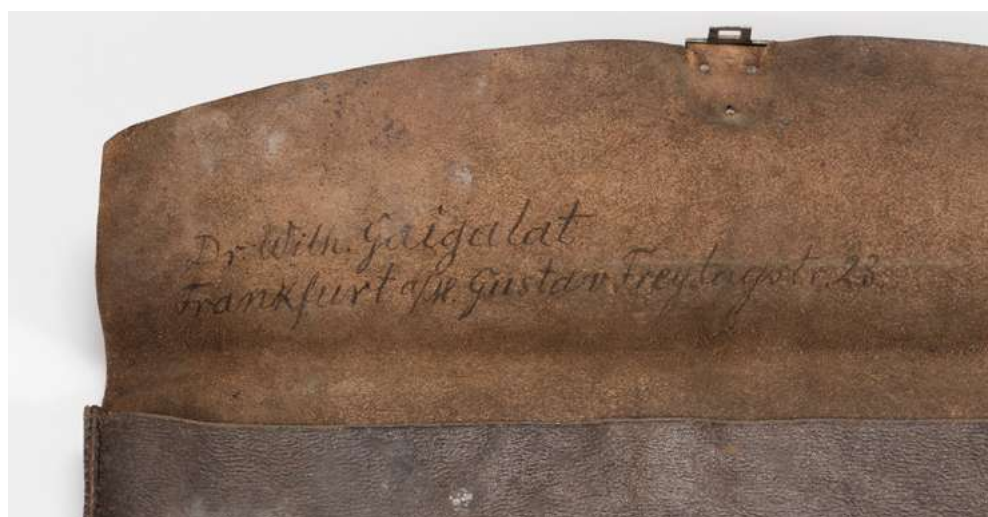 Dr. Wilh. Gaigalat
Frankfurt a/M. Gustav Freytagstr. 23.